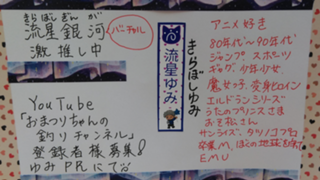 きらぼしぎんが
流星銀河
バーチャル
激推し中
YouTube
「おまつりちゃんの
釣りチャンネル」
登録者様募集♪
ゆみPRにて
流星ゆみ
きらぼしゆみ
アニメ好き
80年代〜90年代
ジャンプ スポーツ
ギャグ 少年少女
魔女っ子 変身ヒロイン
エルドランシリーズ
うたのプリンスさま
おそ松さん
サンライズ タツノコプロ
卒業M、ぼくの地球を守って
EMU